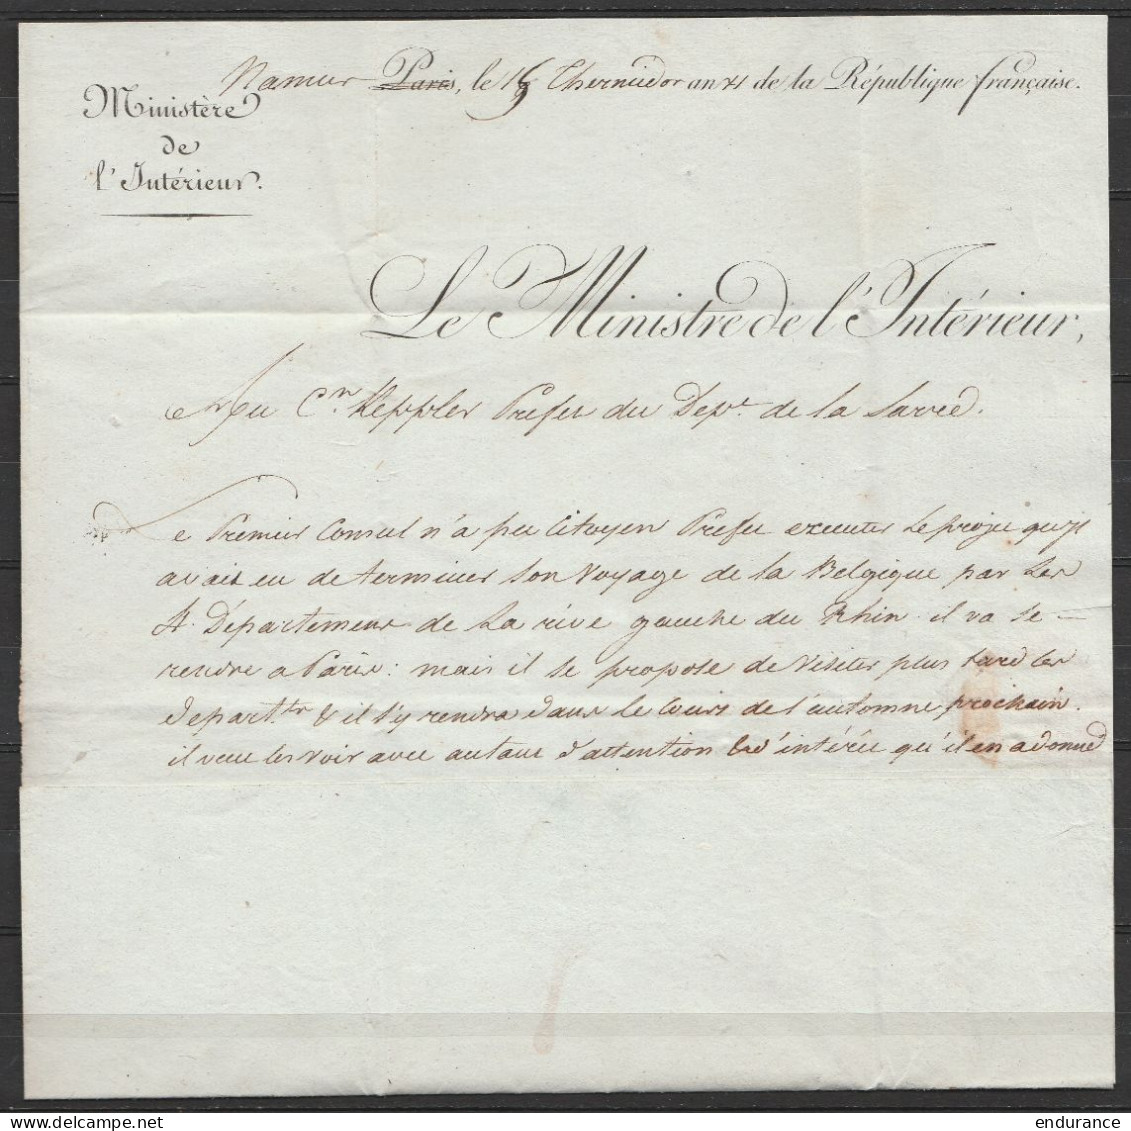 Namur Paris, le 15 Thermidor an XI de la République française.
Ministère
de
l'Intérieur.
Le Ministre de l'Intérieur,
Au Cen. Keppler Prefet du Dept. de la Sarre.
Le Premier Consul n'a pu Citoyen Prefet executer le projet qu'il
avait eu de terminer son Voyage de la Belgique par les
4. Départemens de la rive gauche du Rhin. il va se
rendre a Paris: mais il se propose de visiter plus tard les
départts. & il s'y rendra dans le Cours de l'automne prochain.
il veut les voir avec autant d'attention & d'intérêt qu'il en a donné
delcampe.net
endurance